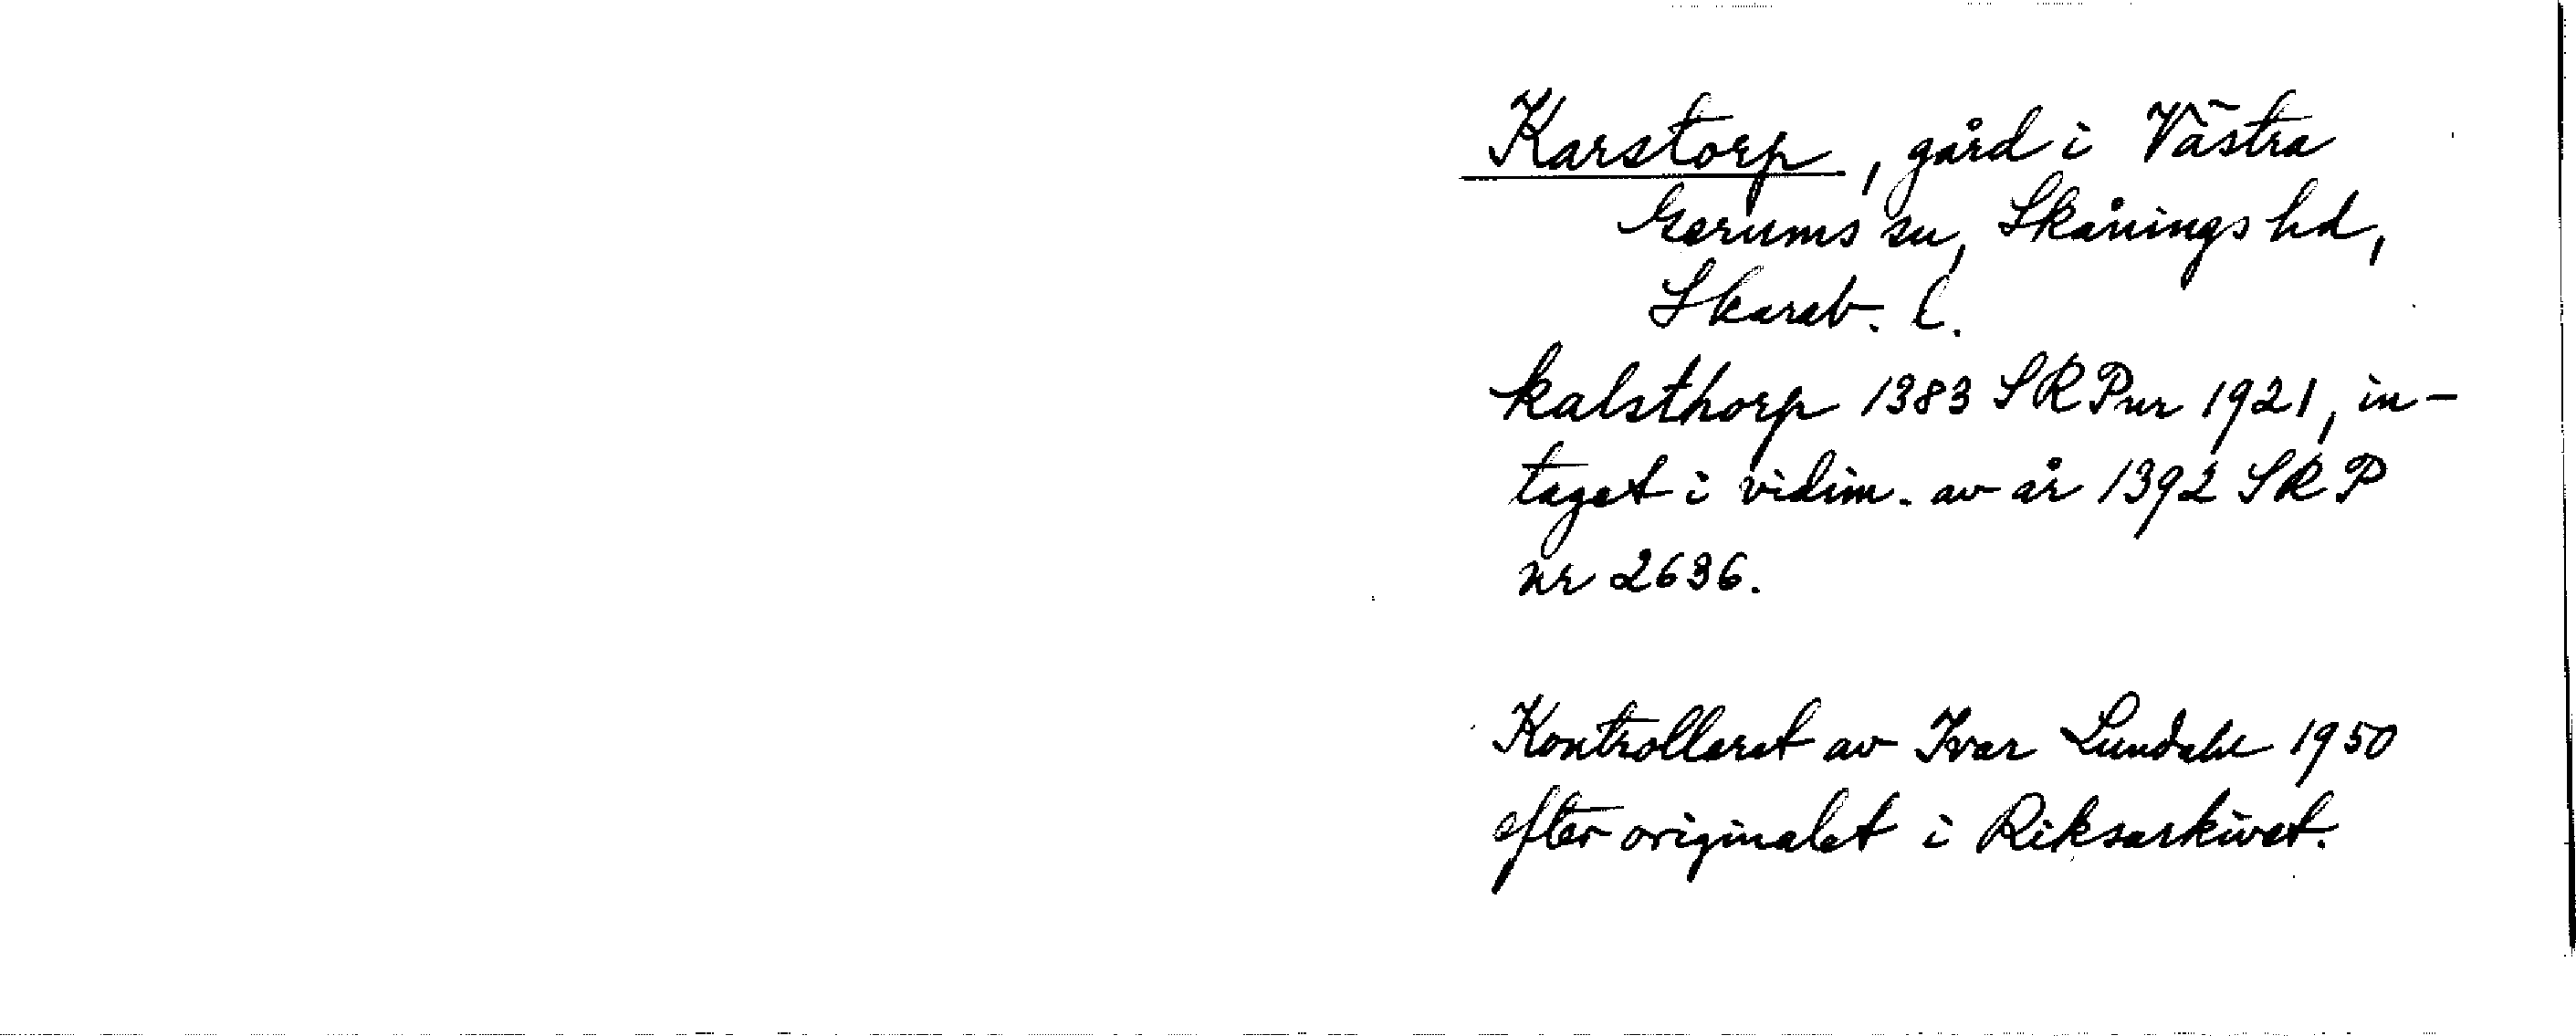 Karstorp, gård i Västra
Gerums sn, Skånings hd,
Skarab. l.
kalsthorp 1383 SRP nr 1921, in-
taget i vidim. av år 1392 SRP
nr 2636.
Kontrollerat av Ivar Lundahl 1950
efter originalet i Riksarkivet.